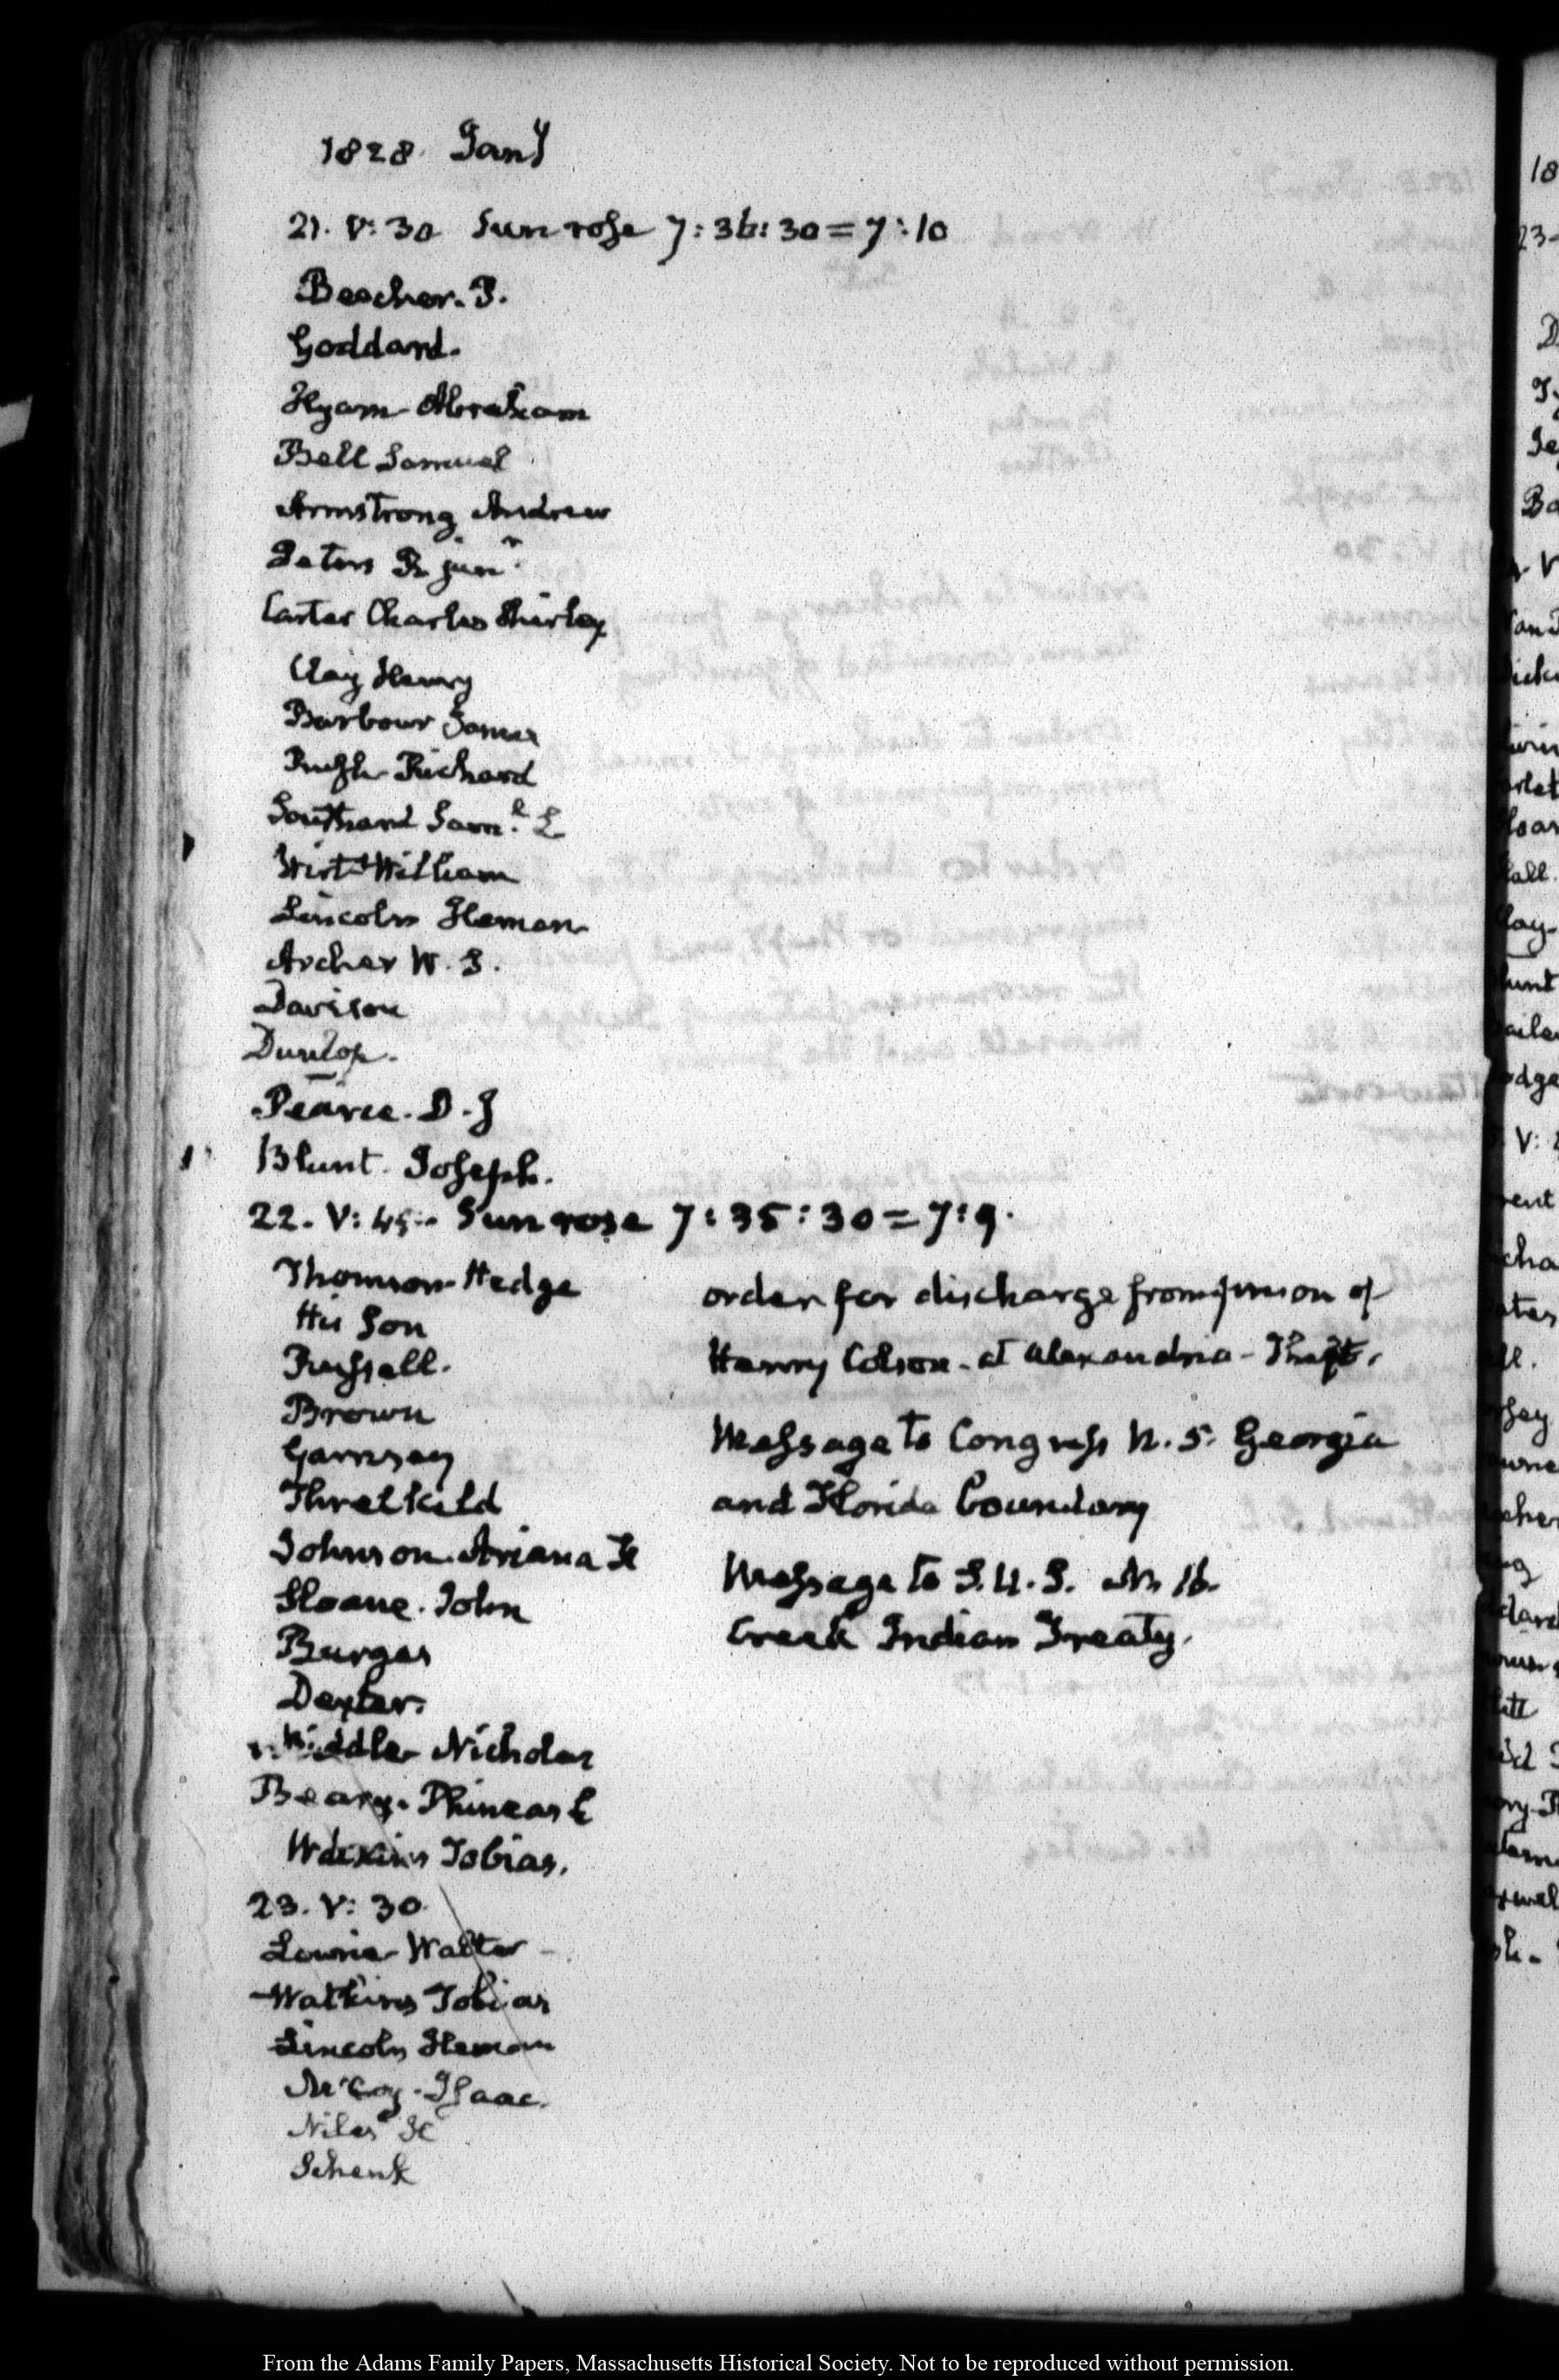 1828 Jany
21. V: 30 Sun rose 7: 36: 30 = 7: 10
Beecher. P.
Goddard.
Hyam Abraham
Bell Samuel
Armstrong Andrew
Peters R junr.
Carter Charles Shirley
Clay Henry
Barbour James
Rush Richard
Southard Saml. L
Wirt William
Lincoln Heman
Archer W. S.
Davison
Dunlop.
Pearce. D. J
Blunt. Joseph.
22. V: 45. Sun rose 7: 35: 30 = 7: 9.
Thomson Hedge
His Son
Russell.
Brown
Garnsey
Threlkeld
Johnson Ariana H
Sloane. John
Burges
Dexter.
Biddle Nicholas
Beary. Phineas L
Watkins Tobias.
order for discharge from prison of
Henry Colson. at Alexandria - Theft.
Message to Congress N. 5. Georgia
and Florida Boundary
Message to S. U. S. N. 16.
Creek Indian Treaty.
23. V: 30
Lowrie Walter
Watkins Tobias
Lincoln Heman
McCoy. Isaac.
Niles H
Schenk
18
23-
From the Adams Family Papers, Massachusetts Historical Society. Not to be reproduced without permission.